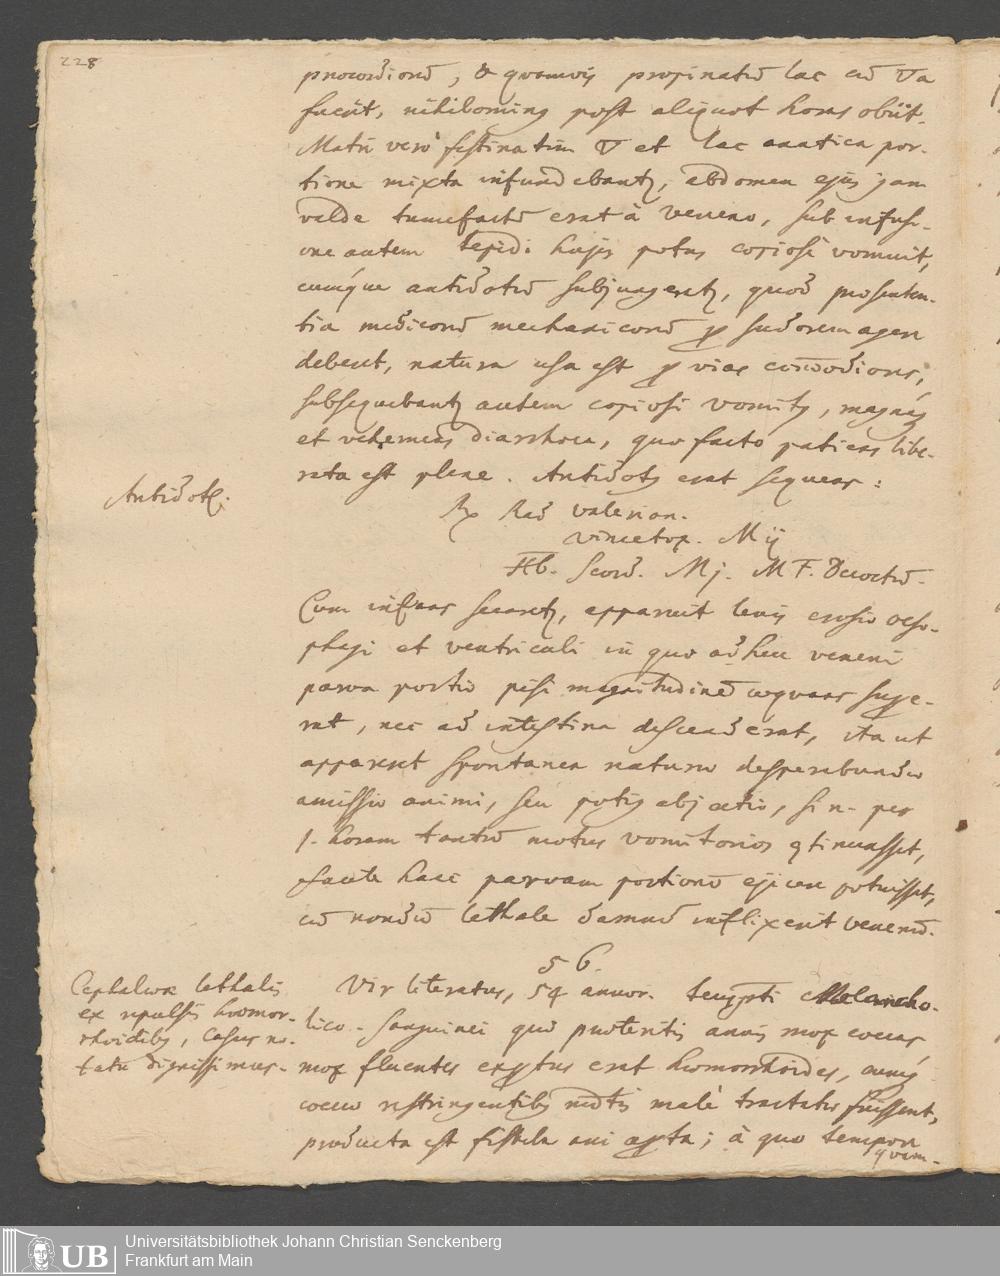 228
praecordiorũ, & quamvis propinatũ lac cũ 🜄a
fuerit, nihilominq post aliquot horas obiit.
Matri verò festinatim 🜄 et lac anatica por-
tione mixta infundebantʒ, abdomen ejus jam
valde tumefactũ erat à veneno, sub infusi-
one autem tepidi hujus potus copiosè vomuit,
cumque antidotũ subjungeretʒ, quod
tia medicorũ mechanicorũ ꝑ sudorem agere
debent, natura usa est ꝑ vias com̃odiores,
subsequebantʒ autem copiosi vomitq, magnaq
et vehemens diarrhoea, quo facto patiens libe-
rata est plene. Antidotq erat sequens:
Antidotq.
℞ Rad valerian.
vincetox. Mij
Hb. Scord. Mj. M F. Decoctũ.
Cum infans secaretʒ, apparuit levis erosio oeso-
phagi et ventriculi in quo adhuc veneni
parva portio pisi magnitudinẽ aequans supe-
rat, nec ad intestina descenderat, ita ut
appareret spontanea naturae desperabundae
amissio animi, seu potiq abjectio, si n. per
j. horam tantũ motus vomitorios ꝯtinuasset,
facile hanc parvam portionẽ ejicere potuisset,
cũ nondũ lethale damnũ inflixerit venenũ.
56.
Cephalaea lethalis
ex repulsis haemor-
rhoidibq, Casus no-
tatu dignissimus.
Vir literatus, 54 annor. temp̃ti Melancho-
lico-sanguinei qui praeteritis annis mox coecas
mox fluentes exꝑtus erat haemorrhoides, cumq
coecae restringentibq medtis malè tractatae fuissent,
producta est fistula ani aꝑta; à quo tempore
quam-
Universitätsbibliothek Johann Christian Senckenberg
Frankfurt am Main
UB